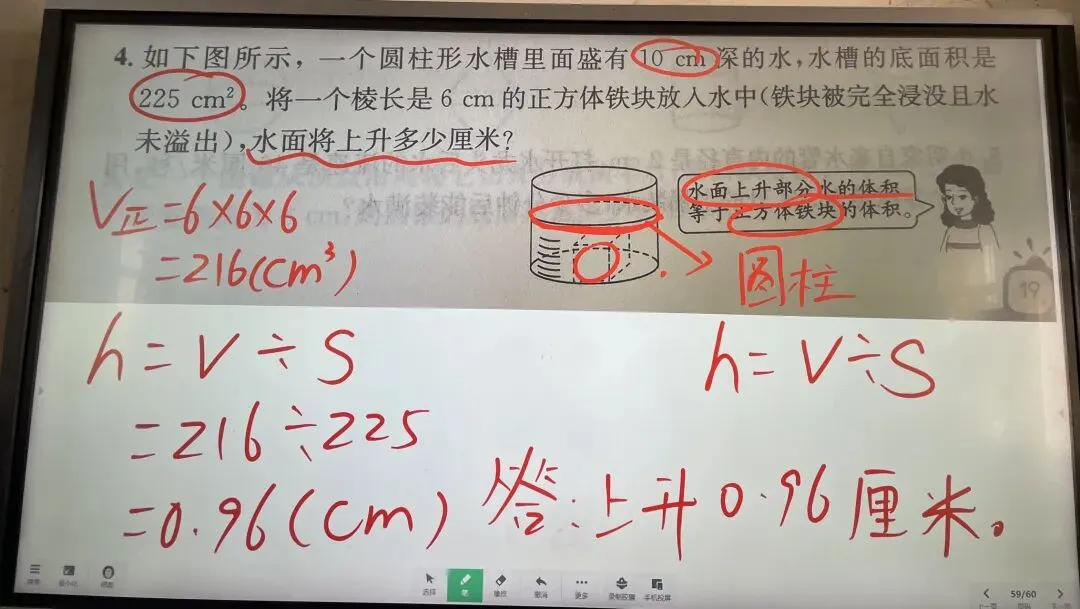 4. 如下图所示，一个圆柱形水槽里面盛有10 cm深的水，水槽的底面积是
225 cm²。将一个棱长是6 cm的正方体铁块放入水中(铁块被完全浸没且水
未溢出)，水面将上升多少厘米？
水面上升部分水的体积
等于正方体铁块的体积。
V正=6×6×6
=216(cm³)
圆柱
19
h=V÷S
=216÷225
=0.96(cm)
h=V÷S
答:上升0.96厘米。
选择
笔
撤消
更多
手机投屏
59/60